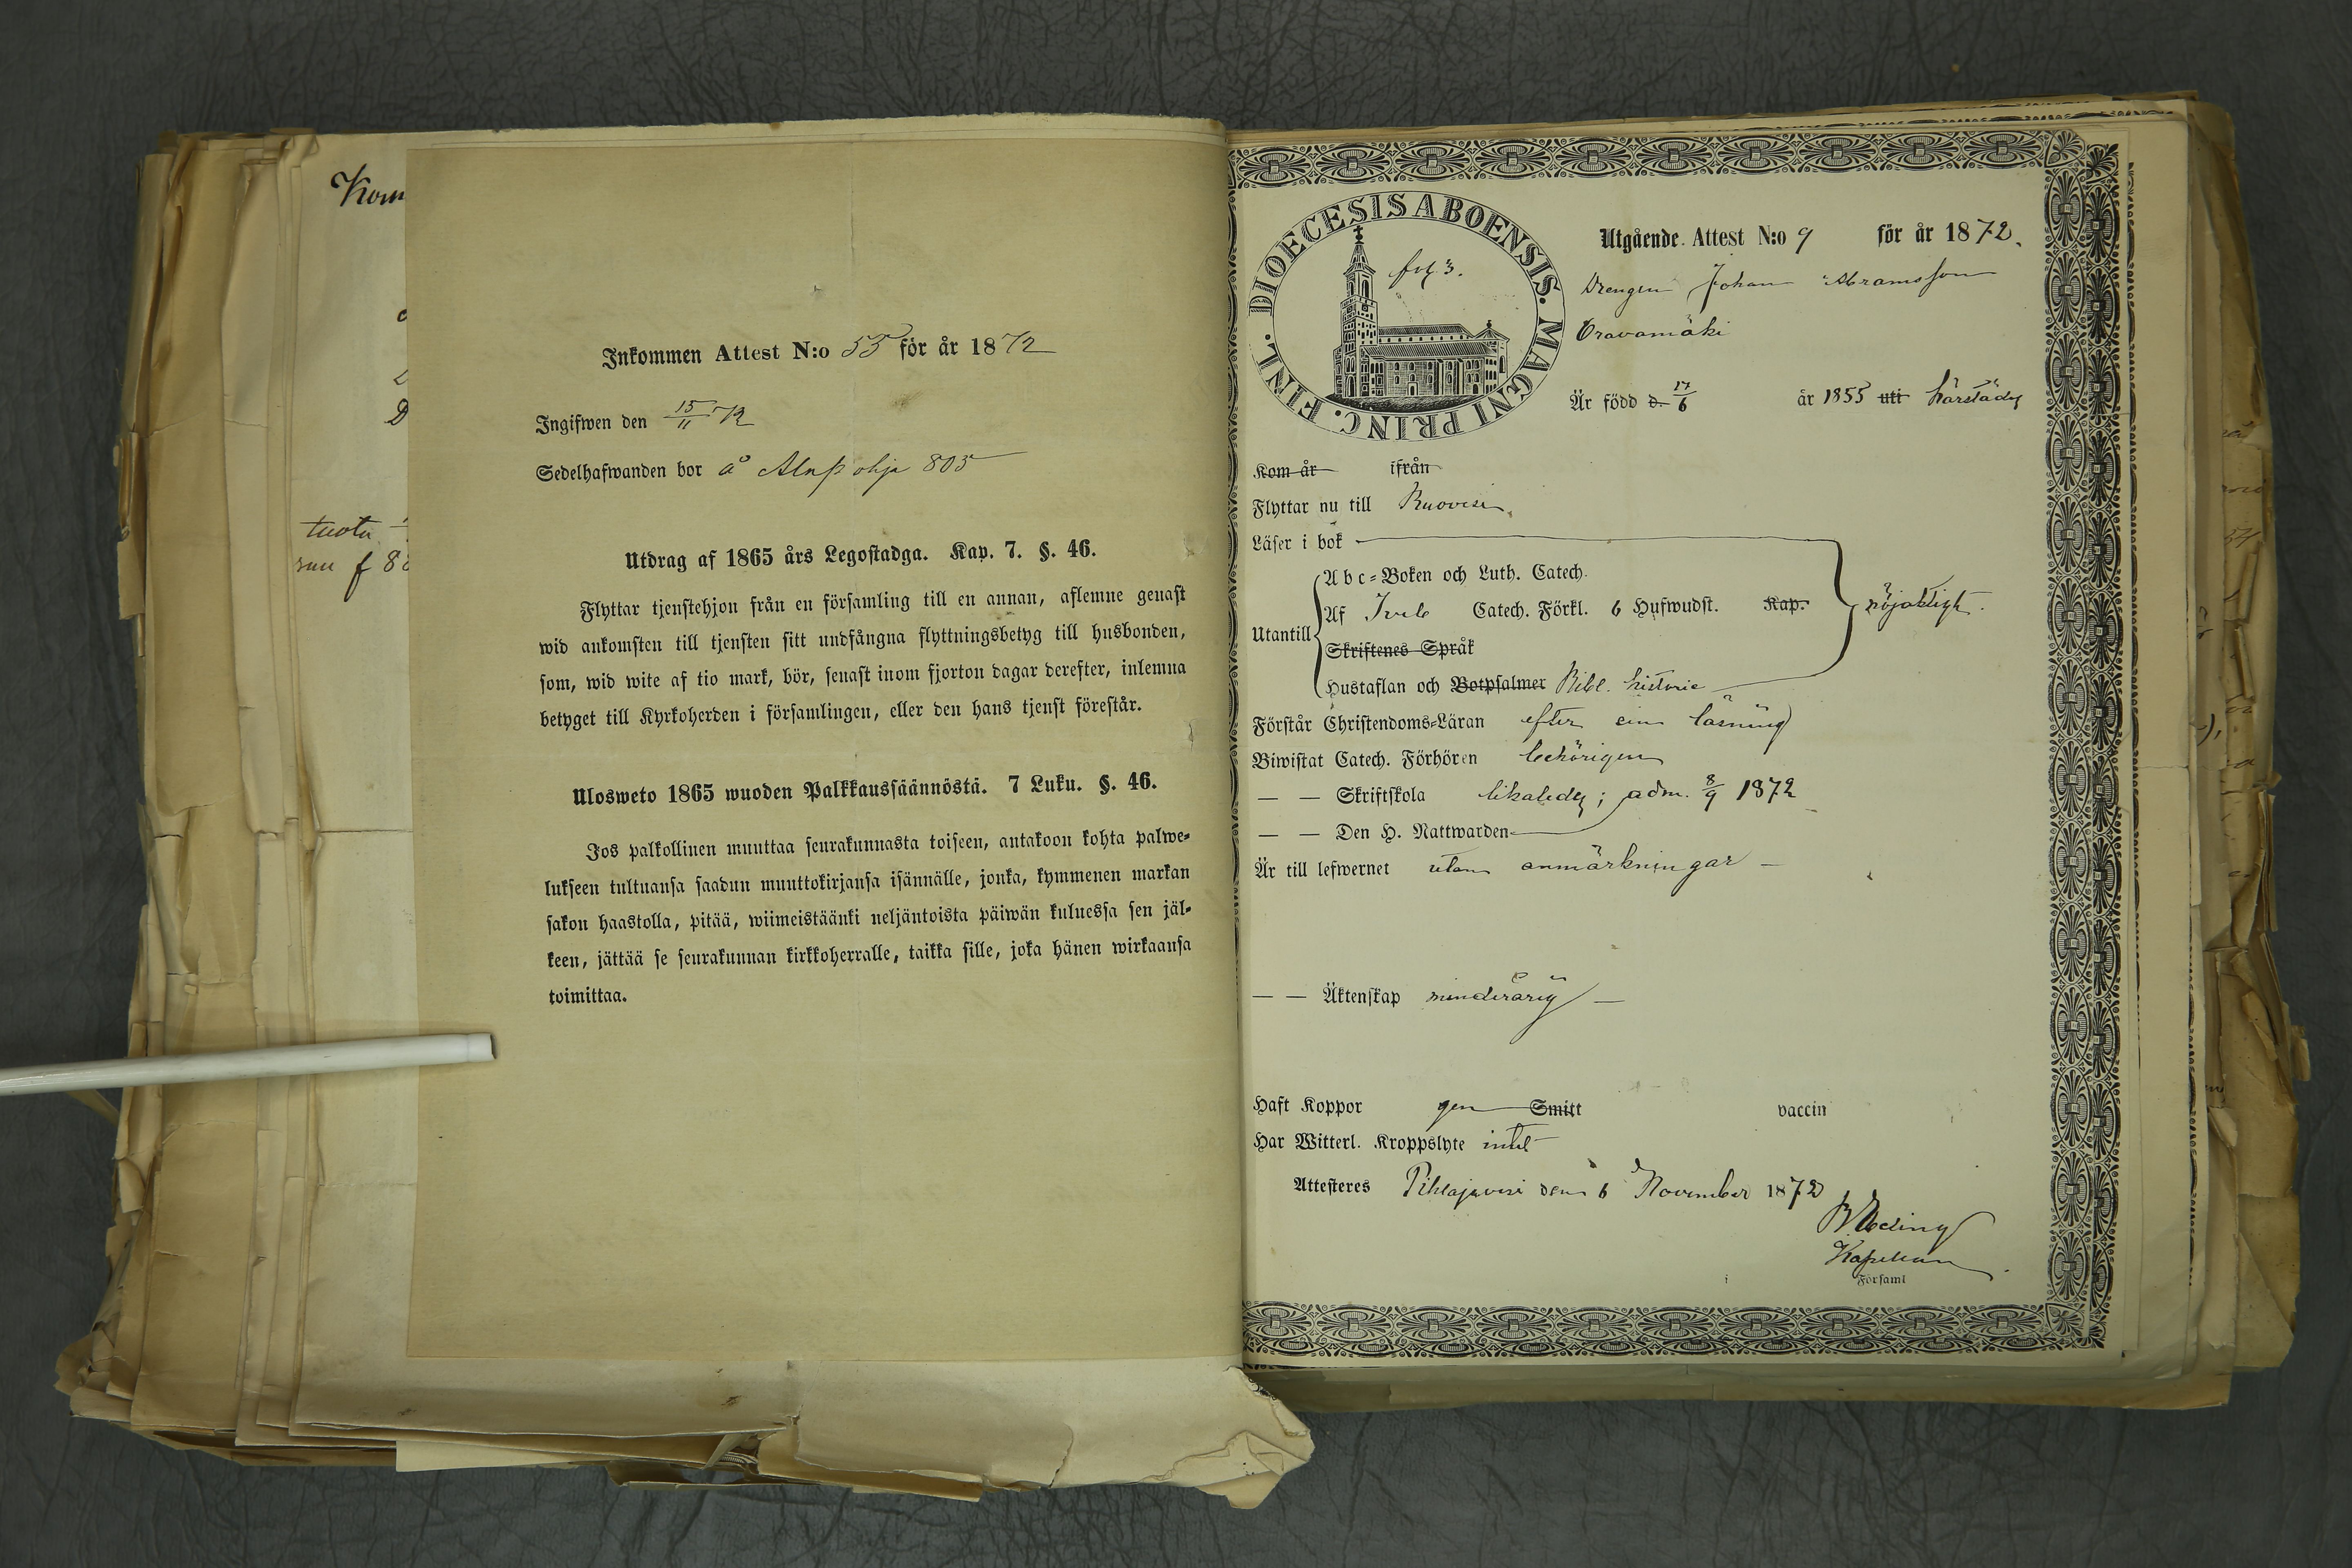 Kom
tuota
f 80
Inkommen Attest N:o 55 för år 1872
Ingifwen den 15/11 72
Sedelhafwanden bor å Alapohja 805
Utdrag af 1865 års Legostadga. Kap. 7. §. 46.
Flyttar tjenstehjon från en församling till en annan, aflemne genast
wid ankomsten till tjensten sitt undfångna flyttningsbetyg till husbonden,
som, wid wite af tio mark, bör, senast inom fjorton dagar derefter, inlemna
betyget till Kyrkoherden i församlingen, eller den hans tjenst förestår.
Ulosweto 1865 wuoden Palkkaussäännöstä. 7 Luku. §. 46.
Jos palkollinen muuttaa seurakunnasta toiseen, antakoon kohta palwe-
lukseen tultuansa saadun muuttokirjansa isännälle, jonka, kymmenen markan
sakon haastolla, pitää, wiimeistäänki neljäntoista päiwän kuluessa sen jäl-
keen, jättää se seurakunnan kirkkoherralle, taikka sille, joka hänen wirkaansa
toimittaa.
DIOECESIS ABOENSIS. MAGNI PRINC. FINL.
fol 3.
Utgående. Attest N:o 9 för år 1872.
Drengen Johan Abramsson
Oravamäki
Är född d. 17/6 år 1855 uti härstädes
Kom år ifrån
Flyttar nu till Ruovesi
Läser i bok
Utantill
Abc-Boken och Luth. Catech.
Af Catech. Förkl. 6 Hufwudst. Kap. nöjaktigt.
Skriftenes Språk
Hustaflan och Botpsalmer Bibl. historie
Förstår Christendoms-Läran efter sin läsning
Biwistat Catech. Förhören behörigen
— — Skriftskola likaledes; adm. 8/9 1872
— — Den H. Nattwarden
Är till lefwernet utan anmärkningar —
— — Äktenskap minderårig —
Haft Koppor gen Smitt vaccin
Har Witterl. Kroppslyte intet
Attesteres Pihlajavesi den 6 November 1872
Kapellan
i Församl